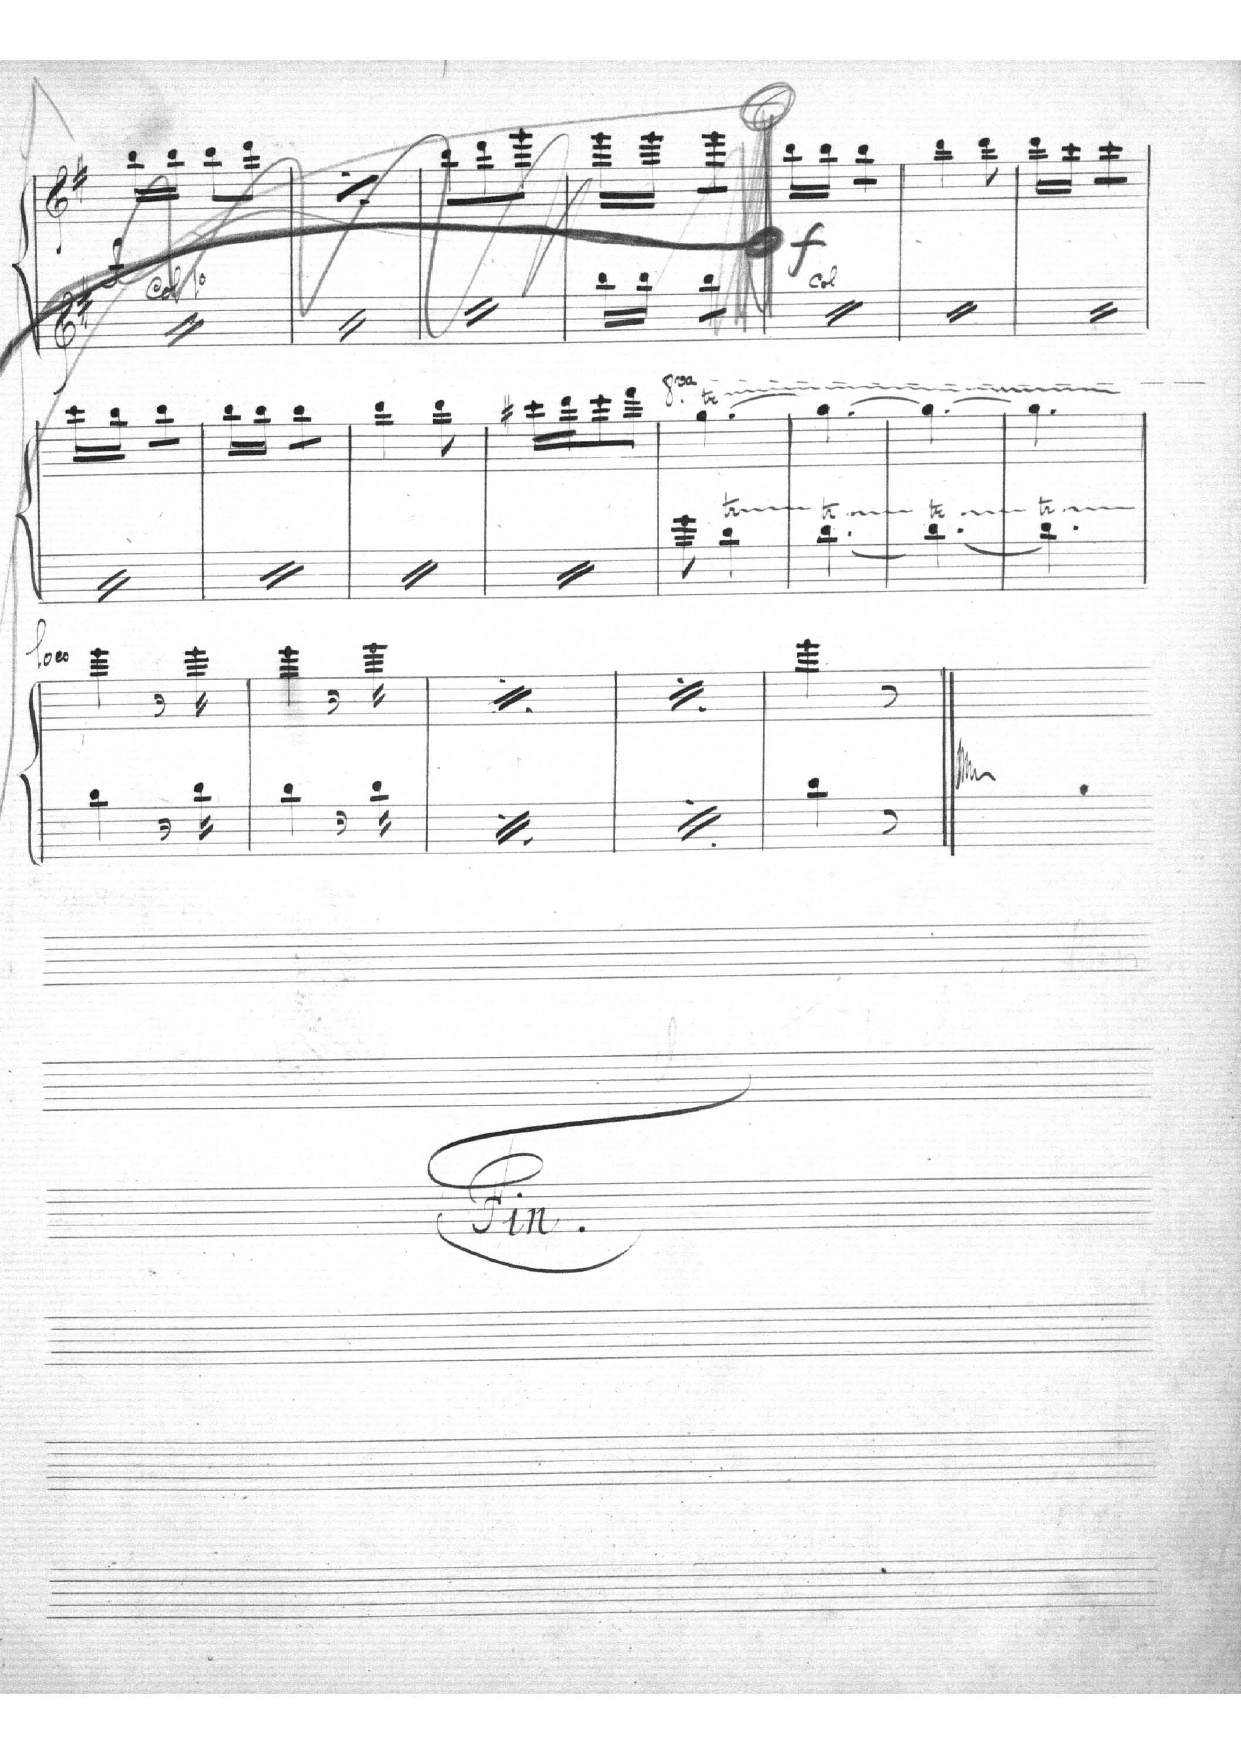 Col 1º
f
Col
8va tr
tr tr tr tr
loco
Fin.